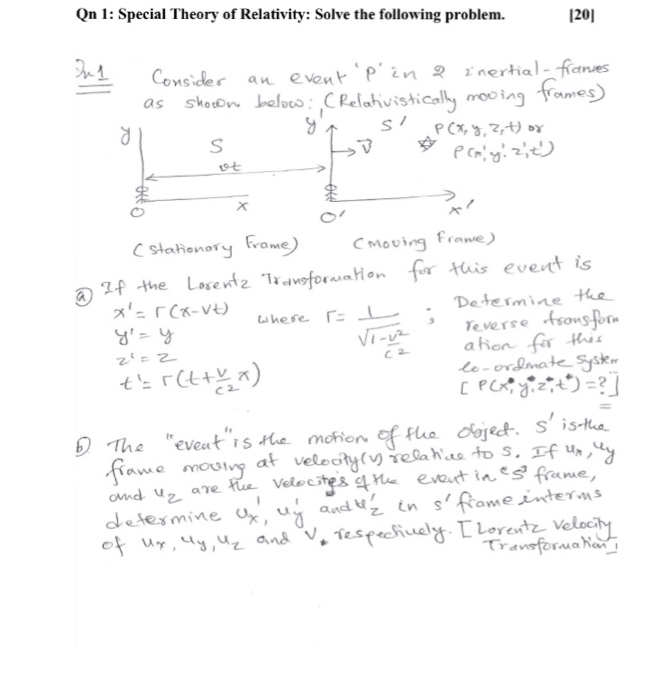 Qn 1: Special Theory of Relativity: Solve the following problem. [20]
Qn1 Consider an event 'P' in 2 inertial-frames
as shown below: (Relativistically moving frames)
y S y' S' P(x, y, z, t) or
vt v⃗ P(x', y', z', t')
O x O' x'
(Stationary Frame) (Moving Frame)
ⓐ If the Lorentz Transformation for this event is
x' = Γ(x-vt) where Γ = 1/√(1-v²/c²) ; Determine the
y' = y reverse transform
z' = z ation for this
t' = Γ(t+v/c² x) co-ordinate system
[P(x, y, z, t) = ?]
b) The "event" is the motion of the object. S' is the
frame moving at velocity (v) relative to S. If ux, uy
and uz are the velocites of the event in "S" frame,
determine ux', uy' and uz' in S' frame interms
of ux, uy, uz and V, respectively. [Lorentz Velocity
Transformation]